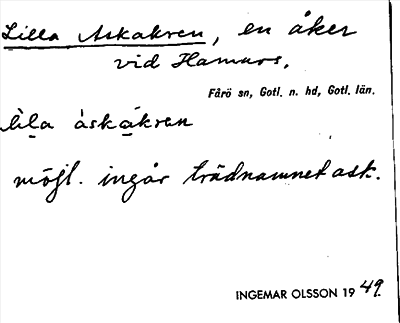 Lilla Askakren, en åker
vid Hamnors.
Fårö sn, Gotl. n. hd, Gotl. län.
lila áskakren
möjl. ingår trädnamnet ask.
INGEMAR OLSSON 1949